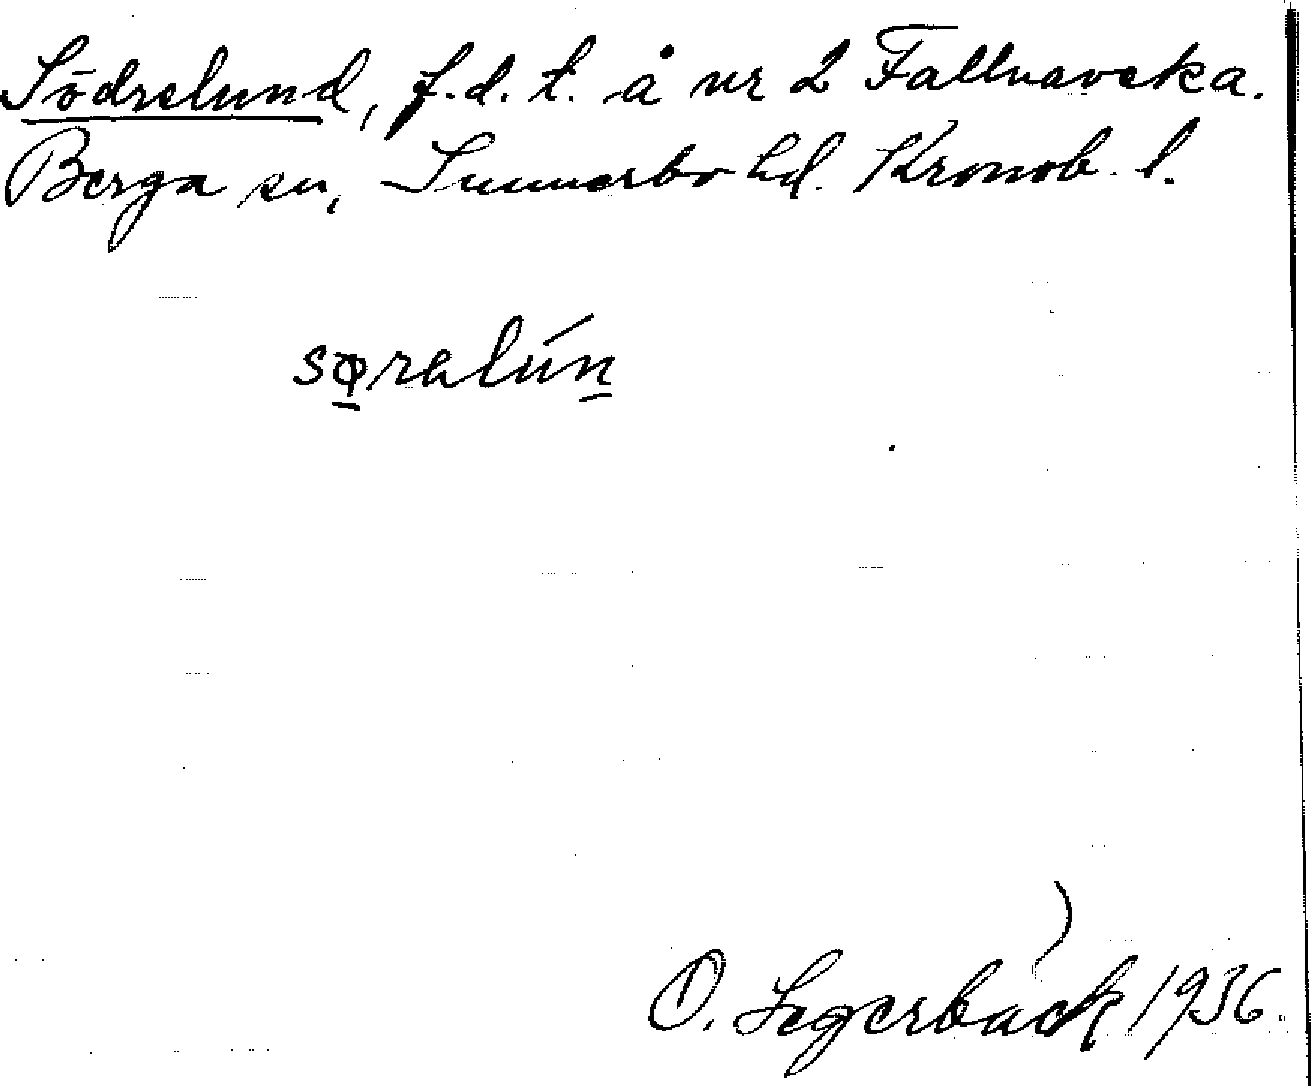 Söderlund, f.d. t. å nr 2 Fallnaveka.
Berga sn, Sunnerbo hd. Kronob. l.
sǫralún
O. Segerbäck 1936.